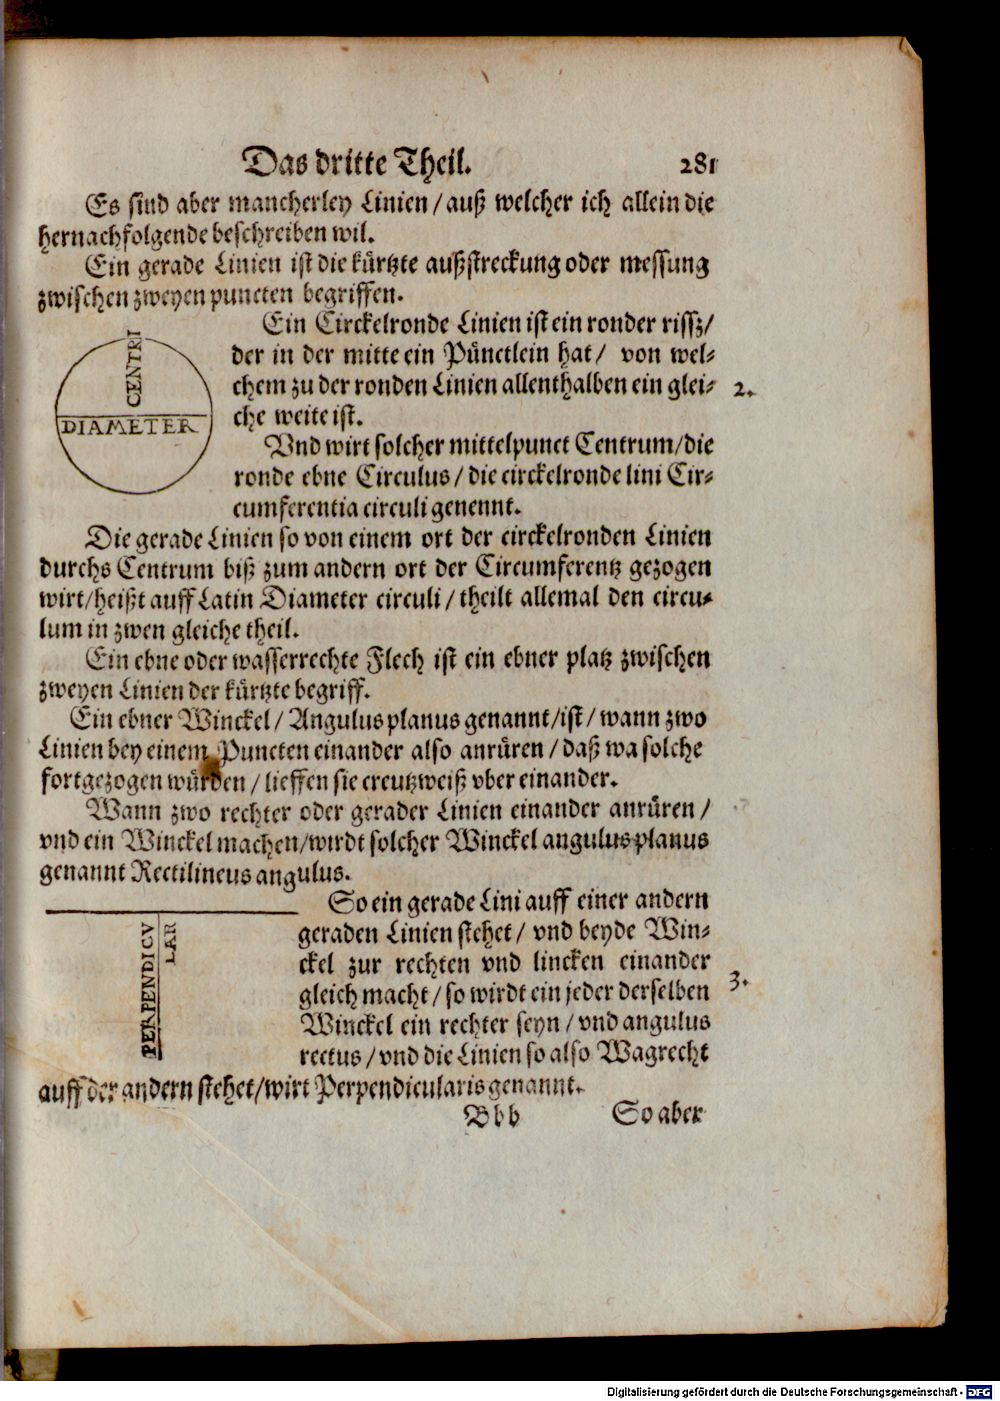 Das dritte Theil. 281
Es sind aber mancherley Linien / auß welcher ich allein die
hernachfolgende beschreiben wil.
Ein gerade Linien ist die kürtzte außstreckung oder messung
zwischen zweyen puncten begriffen.
CENTRI
DIAMETER
Ein Circkelronde Linien ist ein ronder rissz/
der in der mitte ein Pünctlein hat / von wel-
chem zu der ronden Linien allenthalben ein glei-
che weite ist.
2.
Vnd wirt solcher mittelpunct Centrum/die
ronde ebne Circulus / die circkelronde lini Cir-
cumferentia circuli genennt.
Die gerade Linien so von einem ort der circkelronden Linien
durchs Centrum biß zum andern ort der Circumferentz gezogen
wirt/heißt auff Latin Diameter circuli / theilt allemal den circu-
lum in zwen gleiche theil.
Ein ebne oder wasserrechte Flech ist ein ebner platz zwischen
zweyen Linien der kürtzte begriff.
Ein ebner Winckel / Angulus planus genannt/ist / wann zwo
Linien bey einem Puncten einander also anrüren / daß wa solche
fortgezogen würden / lieffen sie creutzweiß vber einander.
Wann zwo rechter oder gerader Linien einander anrüren /
vnd ein Winckel machen/wirdt solcher Winckel angulus planus
genannt Rectilineus angulus.
PERPENDICV
LAR
So ein gerade Lini auff einer andern
geraden Linien stehet / vnd beyde Win-
ckel zur rechten vnd lincken einander
gleich macht / so wirdt ein jeder derselben
Winckel ein rechter seyn / vnd angulus
rectus / vnd die Linien so also Wagrecht
3.
auff der andern stehet/wirt Perpendicularis genannt.
Bbb So aber
Digitalisierung gefördert durch die Deutsche Forschungsgemeinschaft - DFG